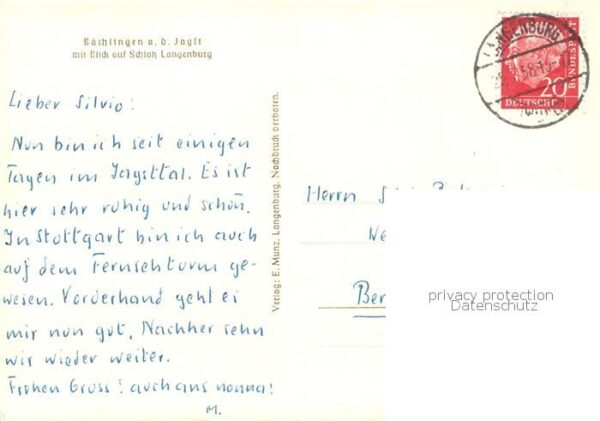 Bächlingen a. d. Jagst
mit Blick auf Schloß Langenburg
LANGENBURG
58-15
20
DEUTSCHE
BUNDESPOST
Lieber Silvio:
Nun bin ich seit einigen
Tagen im Jagsttal. Es ist
hier sehr ruhig und schön.
In Stuttgart bin ich auch
auf dem Fernsehturm ge-
wesen. Vorderhand geht es
mir nun gut. Nachher sehn
wir wieder weiter.
Frohen Gruss! auch ans nonna!
M.
Verlag: E. Munz, Langenburg. Nachdruck verboten.
Herrn
We
Ber
privacy protection
Datenschutz